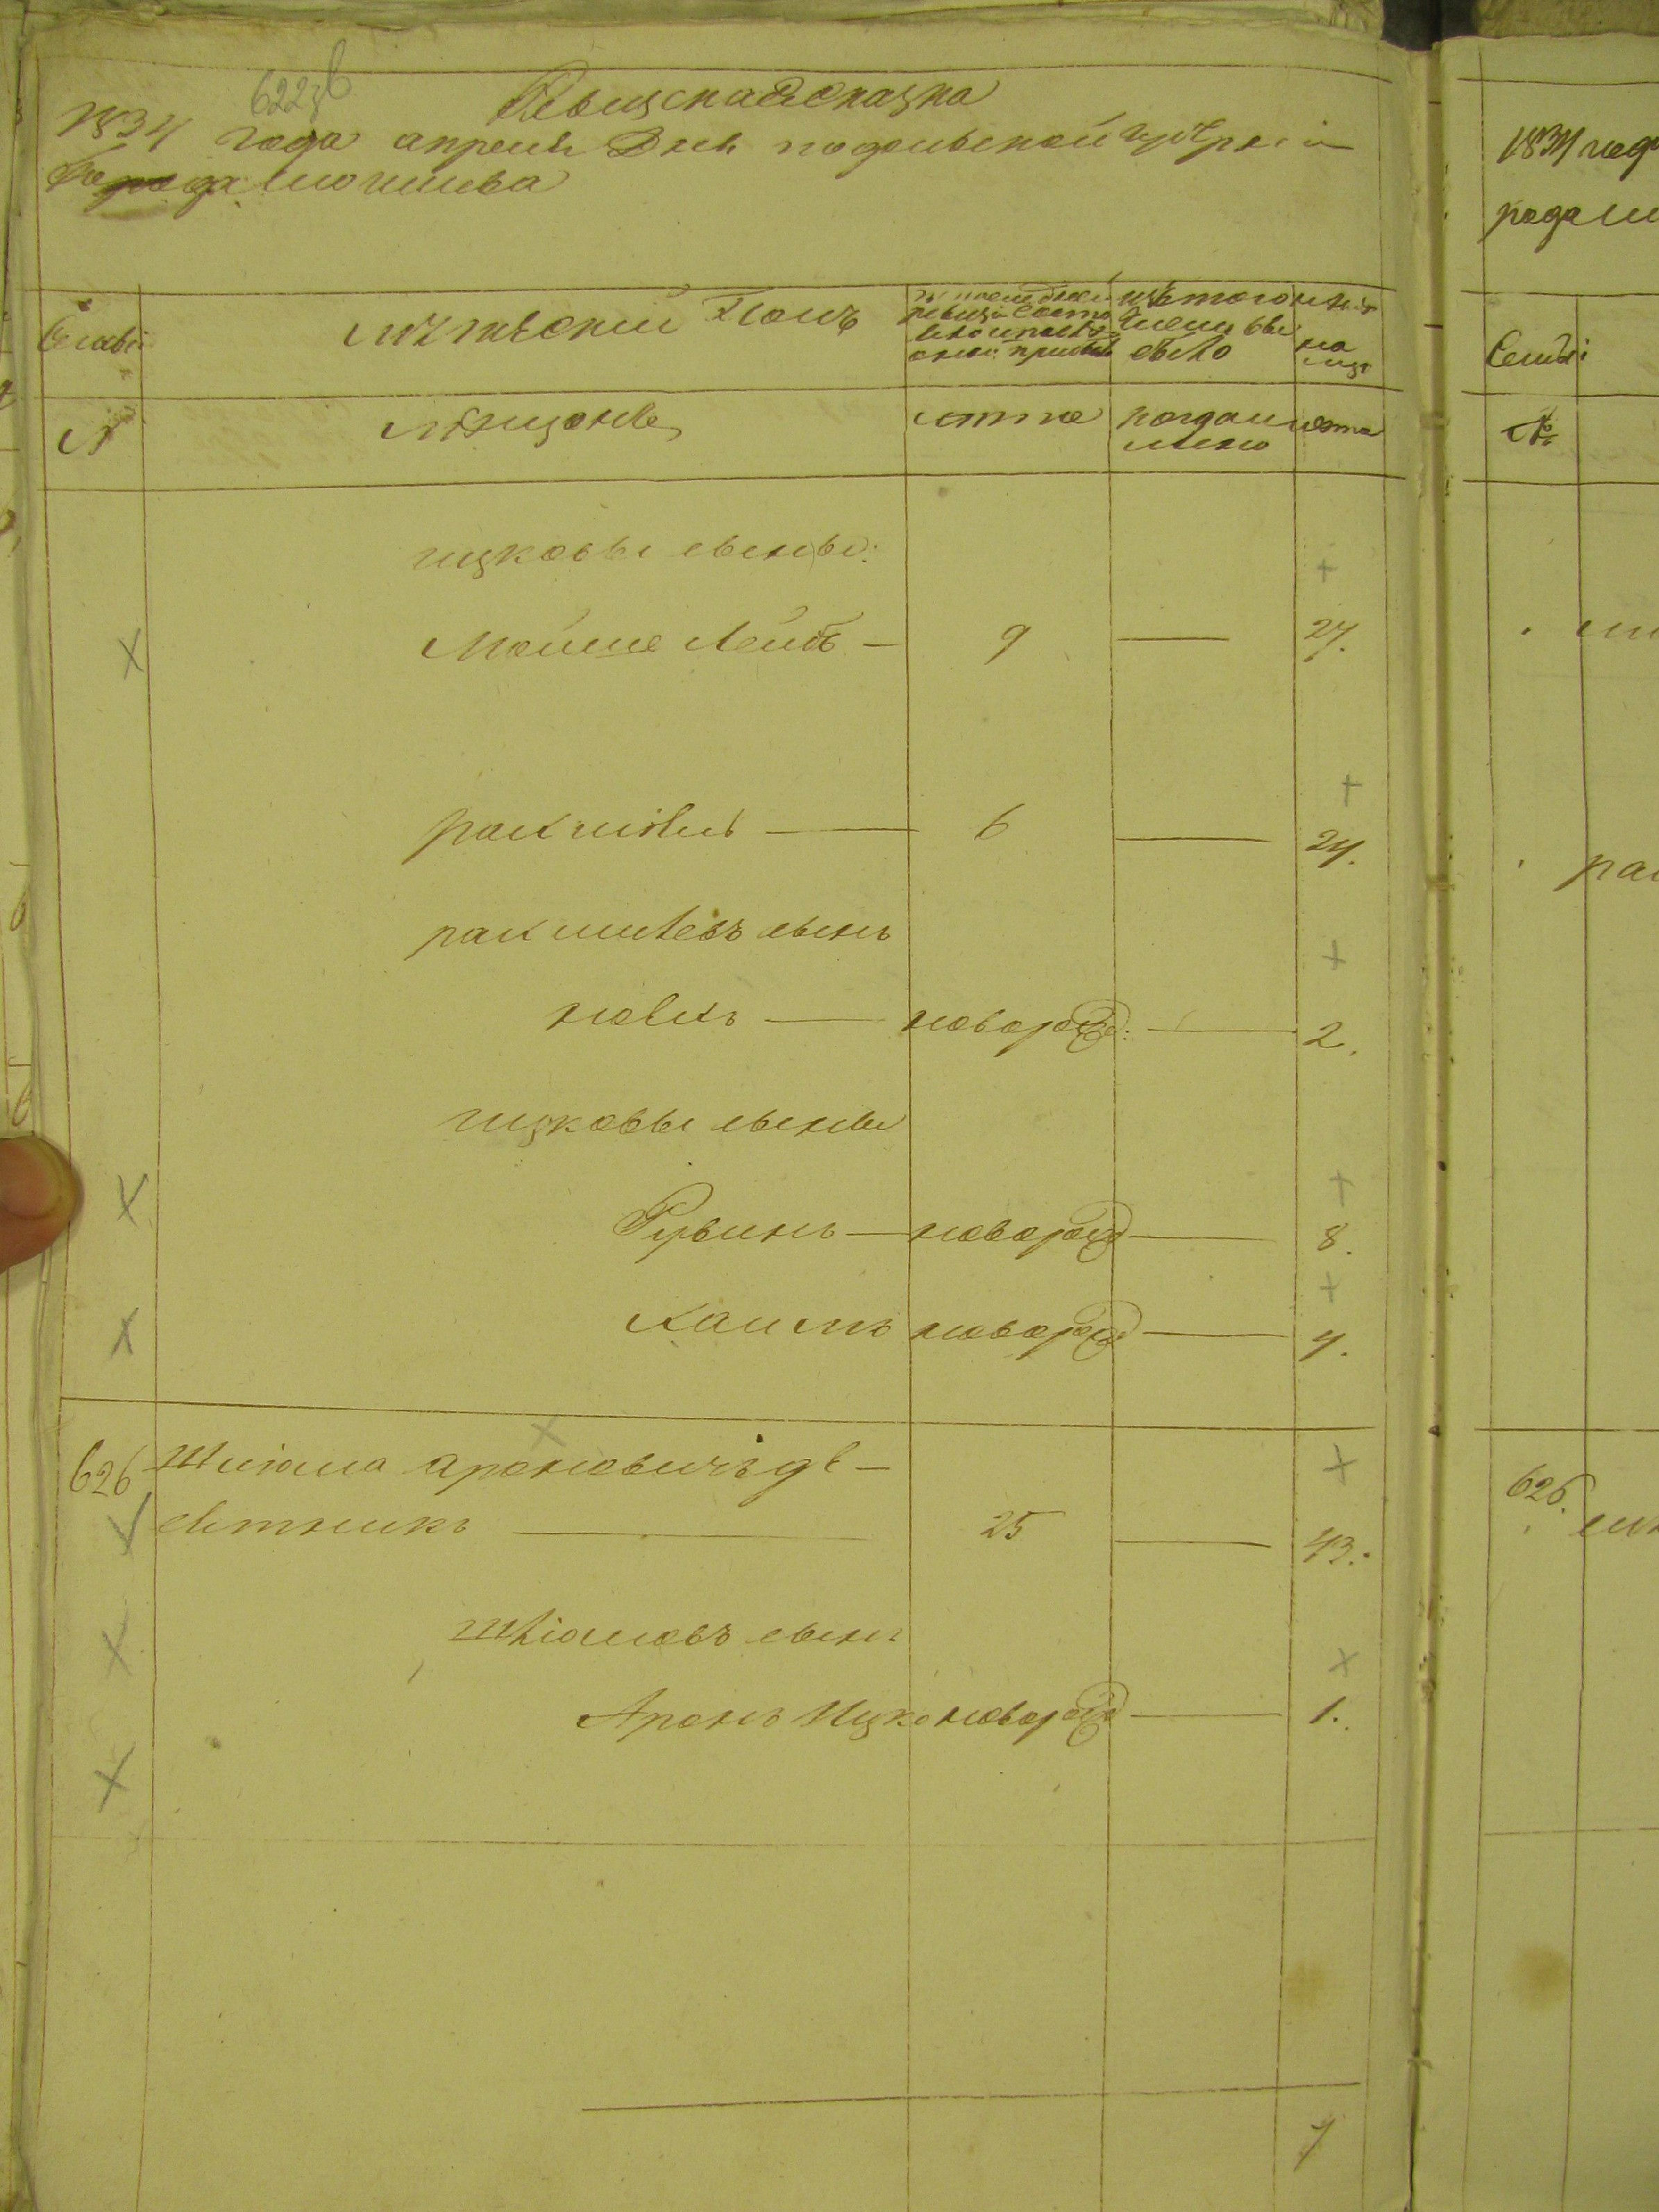 622зв
Ревизская Сказка
1834 года апреля Дня подольской губерніи
города Могилева
Семьи
мужеский Полъ
по последней
ревизіи состо
яло и после
оной прибыло
изъ того
числа вы
было
ныне
на
лицо
№
Мещане
лета
когда и
менно
лета
ицковы сыновья:
Мойше Лейбъ — 9 — 27.
рахмиль — 6 — 24.
рахмилевъ сынъ
новорожд: — 2.
ицковы сыновья
Рувинъ — новорожд — 8.
Хаимъ новорожд — 4.
626
Шлiома ароновичъ де-
сятникъ — 25 — 43.
Шліомовъ сынъ
Аронъ Ицко новорожд — 1.
7
1834 года
рода
Семьи
№
ра
626.